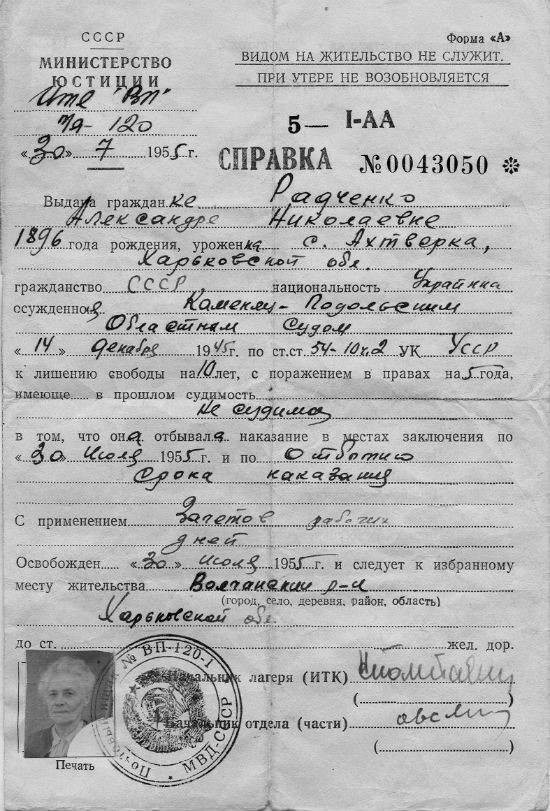 СССР
МИНИСТЕРСТВО
ЮСТИЦИИ
Итл "ВП"
п/я-120
«30» 7 1955г.
Форма «А»
ВИДОМ НА ЖИТЕЛЬСТВО НЕ СЛУЖИТ.
ПРИ УТЕРЕ НЕ ВОЗОБНОВЛЯЕТСЯ
5— I-АА
СПРАВКА №0043050 *
Выдана граждан ке Радченко
Александре Николаевне
1896 года рождения, урожен ка с. Ахтверка,
Харьковской обл.
гражданство СССР, национальность Украинка
осужденной Каменец-Подольским
Областным Судом
«14» декабря 1945г. по ст.ст. 54-10 ч.2 УК УССР
к лишению свободы на 10 лет, с поражением в правах на 5 года,
имеюще в прошлом судимость
не судима
в том, что она отбывала наказание в местах заключения по
«30» Июля 1955г. и по Отбытию
срока наказания
С применением Зачетов рабочих
дней
Освобожден «30» июля 1955г. и следует к избранному
месту жительства Волчанский р-н
(город, село, деревня, район, область)
Харьковской обл.
до ст. жел. дор.
Начальник лагеря (ИТК)
( )
Начальник отдела (части)
( )
Печать
Почтовый ящик № ВП-120-1 * МВД-СССР